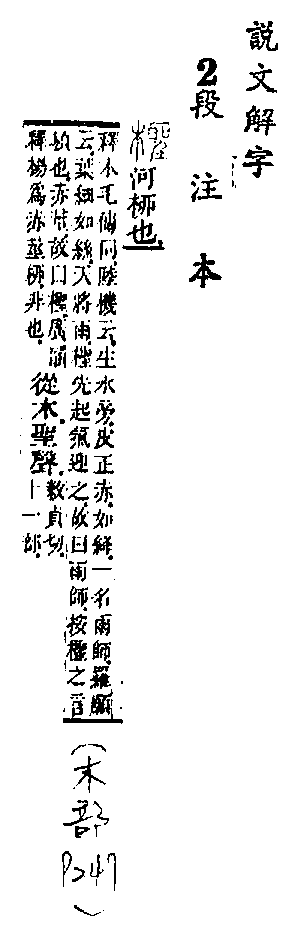 說文解字
2段注本
檉河柳也
釋木毛傳同陸機云生水旁皮正赤如絳一名雨師羅願
云葉細如絲天將雨檉先起氣迎之故曰雨師按檉之言
赬也赤莖故曰檉廣韵
釋楊爲赤莖柳非也
從木聖聲
敕貞切
十一部
(木部
P247)